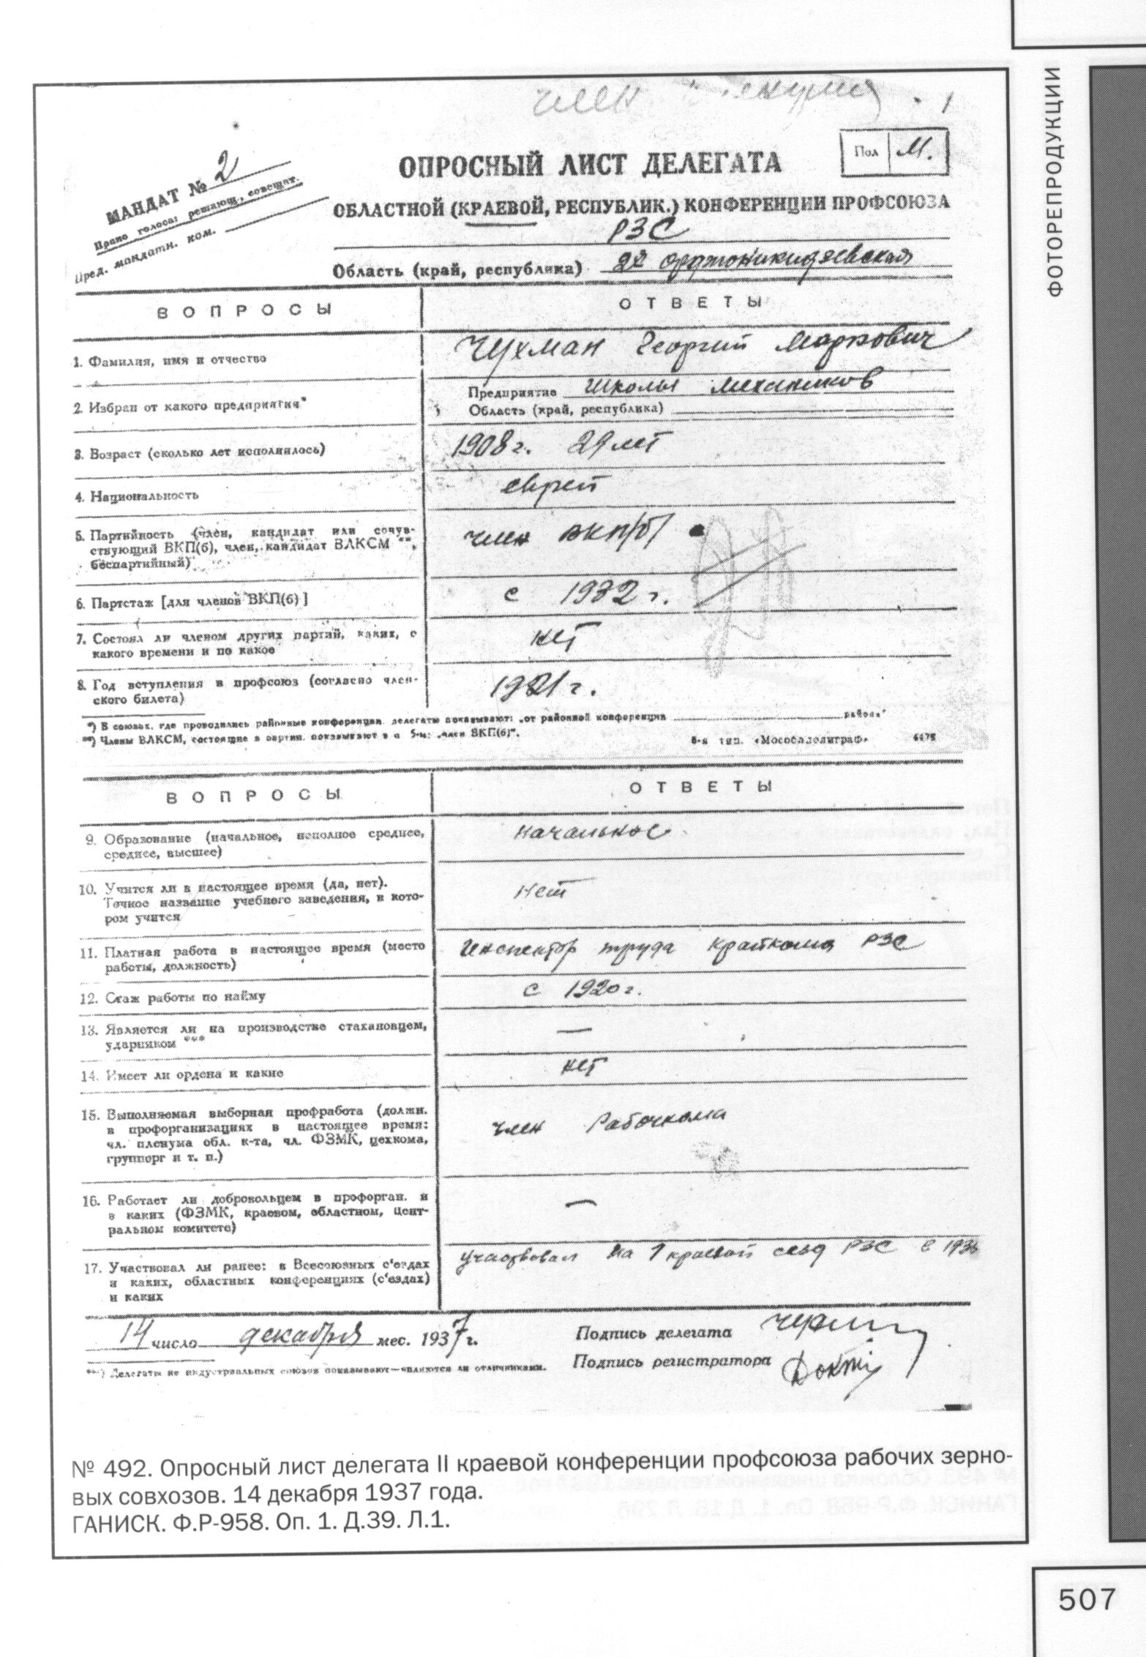 ФОТОРЕПРОДУКЦИИ
член
МАНДАТ № 2
Право голоса: решающ., совещат.
Пред. мандатн. ком.
Пол М.
ОПРОСНЫЙ ЛИСТ ДЕЛЕГАТА
ОБЛАСТНОЙ (КРАЕВОЙ, РЕСПУБЛИК.) КОНФЕРЕНЦИИ ПРОФСОЮЗА
РЗС
Область (край, республика) орджоникидзевская
ВОПРОСЫ
ОТВЕТЫ
1. Фамилия, имя и отчество
Чухман Георгий Маркович
2. Избран от какого предприятия*
Предприятие Школы механиков
Область (край, республика)
3. Возраст (сколько лет исполнилось)
1908 г. 29 лет
4. Национальность
еврей
5. Партийность (член, кандидат или сочув-
ствующий ВКП(б), член, кандидат ВЛКСМ **,
беспартийный)
член ВКП(б)
6. Партстаж [для членов ВКП(б)]
с 1932 г.
7. Состоял ли членом других партий, каких, с
какого времени и по какое
нет
8. Год вступления в профсоюз (согласно член-
ского билета)
1921 г.
*) В союзах, где проводились районные конференции, делегаты показывают: „от районной конференции района"
**) Члены ВЛКСМ, состоящие в партии, показывают в п. 5-м: „член ВКП(б)".
6-я тип. «Мособлполиграф» 6475
ВОПРОСЫ
ОТВЕТЫ
9. Образование (начальное, неполное среднее,
среднее, высшее)
начальное
10. Учится ли в настоящее время (да, нет).
Точное название учебного заведения, в кото-
ром учится
нет
11. Платная работа в настоящее время (место
работы, должность)
Инспектор труда Крайкома РЗС
12. Стаж работы по найму
с 1920 г.
13. Является ли на производстве стахановцем,
ударником ***
—
14. Имеет ли ордена и какие
нет
15. Выполняемая выборная профработа (должн.
в профорганизациях в настоящее время:
чл. пленума обл. к-та, чл. ФЗМК, цехкома,
группорг и т. п.)
член Рабочкома
16. Работает ли добровольцем в профорган. и
в каких (ФЗМК, краевом, областном, Цент-
ральном комитете)
—
17. Участвовал ли ранее: в Всесоюзных с'ездах
и каких, областных конференциях (с'ездах)
и каких
Участвовал на 1 краевой сьезд РЗС в
14 число декабря мес. 1937 г.
Подпись делегата
Подпись регистратора
***) Делегаты не индустриальных союзов показывают—являются ли отличниками.
№ 492. Опросный лист делегата II краевой конференции профсоюза рабочих зерно-
вых совхозов. 14 декабря 1937 года.
ГАНИСК. Ф.Р-958. Оп. 1. Д.39. Л.1.
507